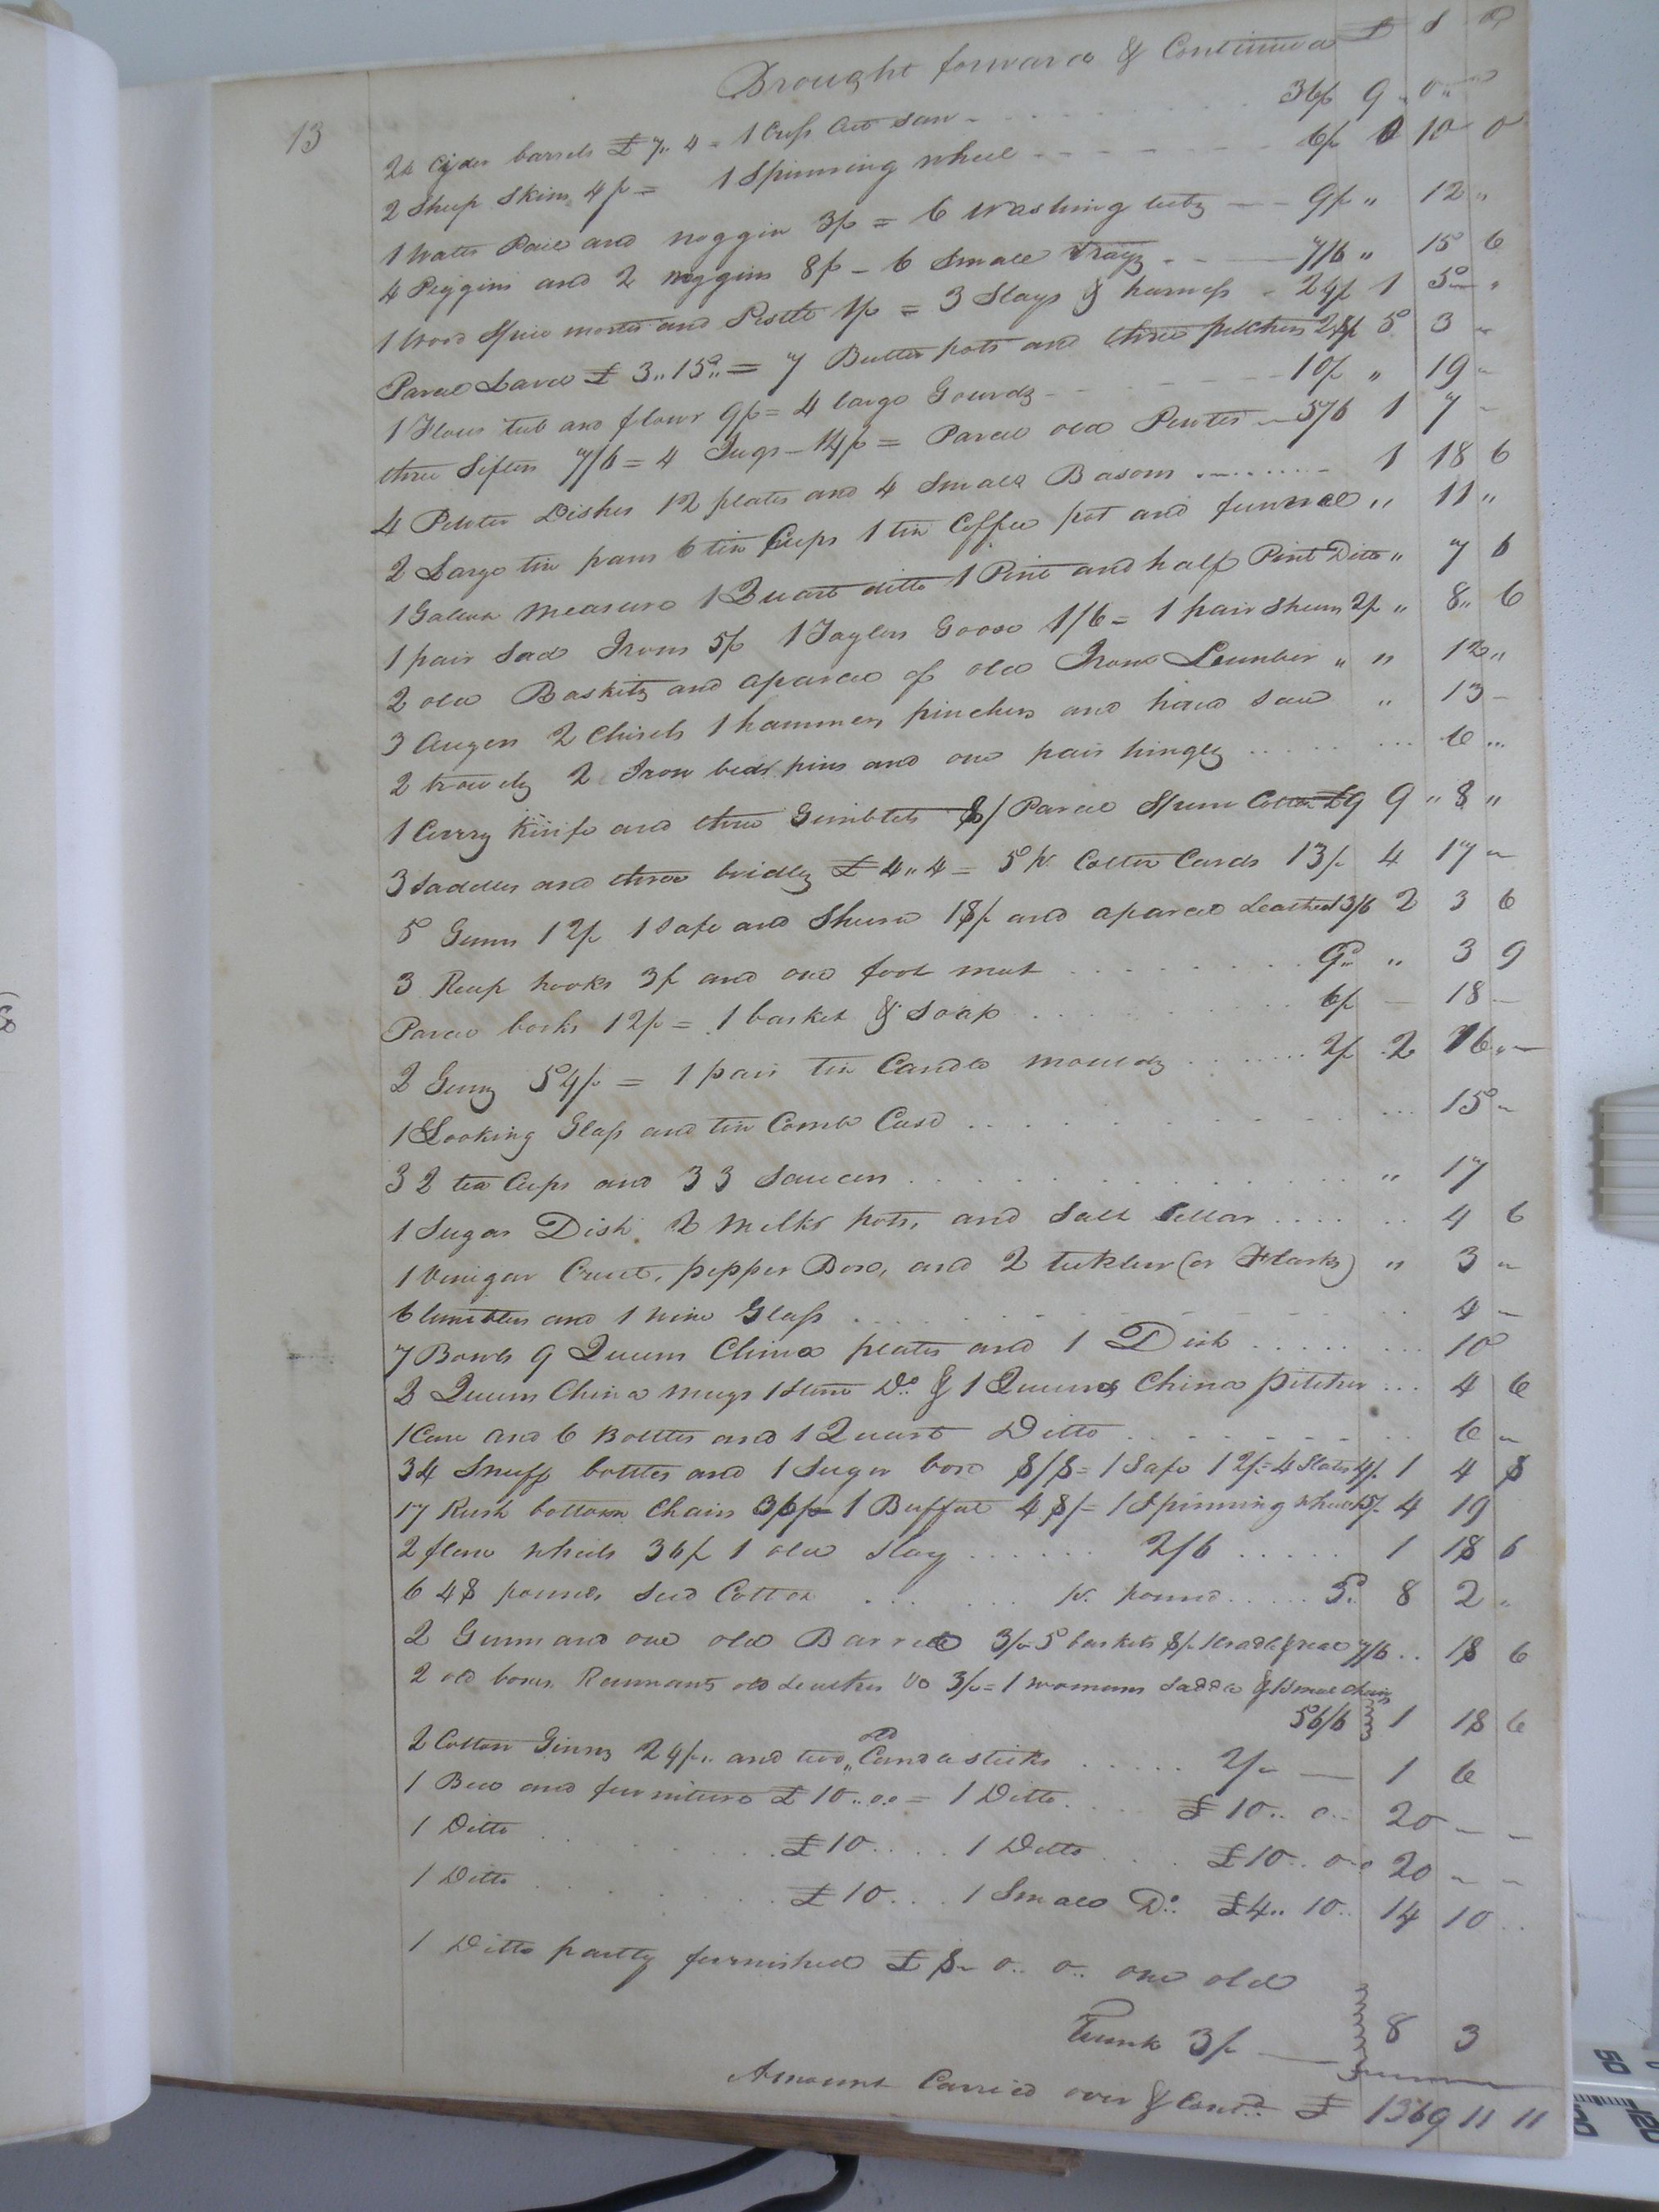 Brought forward & Continued £ S D
13
24 Cyder barrels £7,, 4 - 1 Cross Cut saw - 36/ 9 ,, 0 ,,
2 Sheep Skins 4/ = 1 Spinning wheel - - - 6/ 0 10 0
1 Water Paile and noggin 3/ = 6 Washing tubz - - 9/ ,, 12 ,,
4 Piggins and 2 noggins 8/ - 6 Small Trayz - - 7/6 ,, 15 6
1 Wood Spice morter and Pestle 1/ = 3 Slays & harness - 24/ 1 5 ,,
Parcel Lard £3,, 15,, = 7 Butter pots and three pitchers 28/ 5 3 -
1 Flour tub and flour 9/ = 4 large Gourdz - - - 10/ ,, 19 -
three Sifters 7/6 = 4 Jugs - 14/ = Parcel old Pewter - 5/6 1 7 -
4 Pewter Dishes 12 plates and 4 Small Basons ........ 1 18 6
2 Large tin pans 6 tin Cups 1 tin Coffee pot and funnel ,, 11 ,,
1 Galeon Measure 1 Quart ditto 1 Pint and half Pint Ditto ,, 7 6
1 pair Sad Irons 5/ 1 Taylers Goose 1/6 = 1 pair Shears 2/ ,, 8,, 6
2 old Baskitz and aparcel of old Irons Lumber ,, ,, 12 ,,
3 Augers 2 Chisels 1 hammer, pinchers and hand saw ,, 13 -
2 trowelz 2 Iron beds pins and one pair hingez ........ 6 ...
1 Curry Knife and three Gimblets 8/ Parcel Spun Cotton £9 9 ,, 8 ,,
3 Saddles and three bridlez £4,, 4 = 5 pr. Cotton Cards 13/ 4 17 -
5 Guns 12/ 1 Safe and Shears 18/ and aparcel Leather 13/6 2 3 6
3 Reap hooks 3/ and one foot mat ........ 9d ,, 3 9
Parcel books 12/ = 1 basket & Soap ........ 6/ - 18 -
2 Gunz 54/ = 1 pair tin Candle mouldz ........ 2/ 2 16 ,, -
1 Looking Glass and tin Comb Case ........ 15 -
32 tea Cups and 33 Saucers ........ ,, 17
1 Sugar Dish, 2 Milk pots, and Salt Cellar ........ 4 6
1 Vinigar Cruet, pepper Box, and 2 tickler (or Flasks) ,, 3 -
6 tumblers and 1 wine Glass ........ 4 -
7 Bowls 9 Queens China plates and 1 Dish ........ 10
3 Queens China mugs 1 Stone Do. & 1 Queens China pitcher ... 4 6
1 Case and 6 Bottles and 1 Quart Ditto ........ 6 -
34 Snuff bottles and 1 Suger box 8/8 = 1 Safe 12/ = 4 Slates 4/ 1 4 8
17 Rush bottom Chairs 36/ 1 Buffat 48/ = 1 Spinning wheel 15/ 4 19
2 flax wheels 36/ 1 old Slay ...... 2/6 ..... 1 18 6
648 pounds Seed Cotton ...... pr. pound ..... 3d. 8 2 ,,
2 Gums and one old Barrel 3/ - 5 baskets 8/ 1 8 6
2 old boxes Remnants old Leather 3/ = 1 womans Saddle & 1 Small Chair
36/6 } 1 18 6
2 Cotton Ginnz 24/ .. and two old Candlesticks ..... 2/ - 1 6
1 Bed and furniture £10 .. 0.. = 1 Ditto .... £10 .. 0 .. 20 - -
1 Ditto ........ £10 .... 1 Ditto .... £10 .. 0 .. 0 20 - -
1 Ditto ........ £10 ... 1 Small Do. £4 .. 10 .. 14 10 ..
1 Ditto partly furnished £8 - 0 .. 0 .. one old
Trunk 3/ - } 8 3
Amount Carried over & Contd. £ 1369 11 11